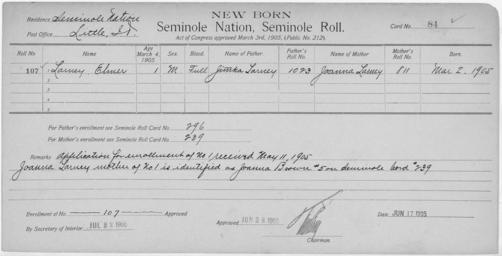 NEW BORN
Residence Seminole Nation
Seminole Nation, Seminole Roll.
Card No. 84
Post Office Little, I.T.
Act of Congress approved March 3rd, 1905, (Public No. 212).
Roll No. Name Age March 4, 1905 Sex. Blood. Name of Father Father's Roll No. Name of Mother Mother's Roll No. Born.
107 1 Larney Elmer 1 M Full Larney 1023 Joanna Larney 811 Mar 2, 1905
2
3
4
5
For Father's enrollment see Seminole Roll Card No. 296
For Mother's enrollment see Seminole Roll Card No. 239
Remarks Application for enrollment of No 1 received May 11, 1905
Joanna Larney mother of No 1 is identified as Joanna Brown #5 on Seminole Card #239
Enrollment of No. 107 Approved
By Secretary of Interior JUL 22 1905
Approved
Chairman
Date JUN 17 1905